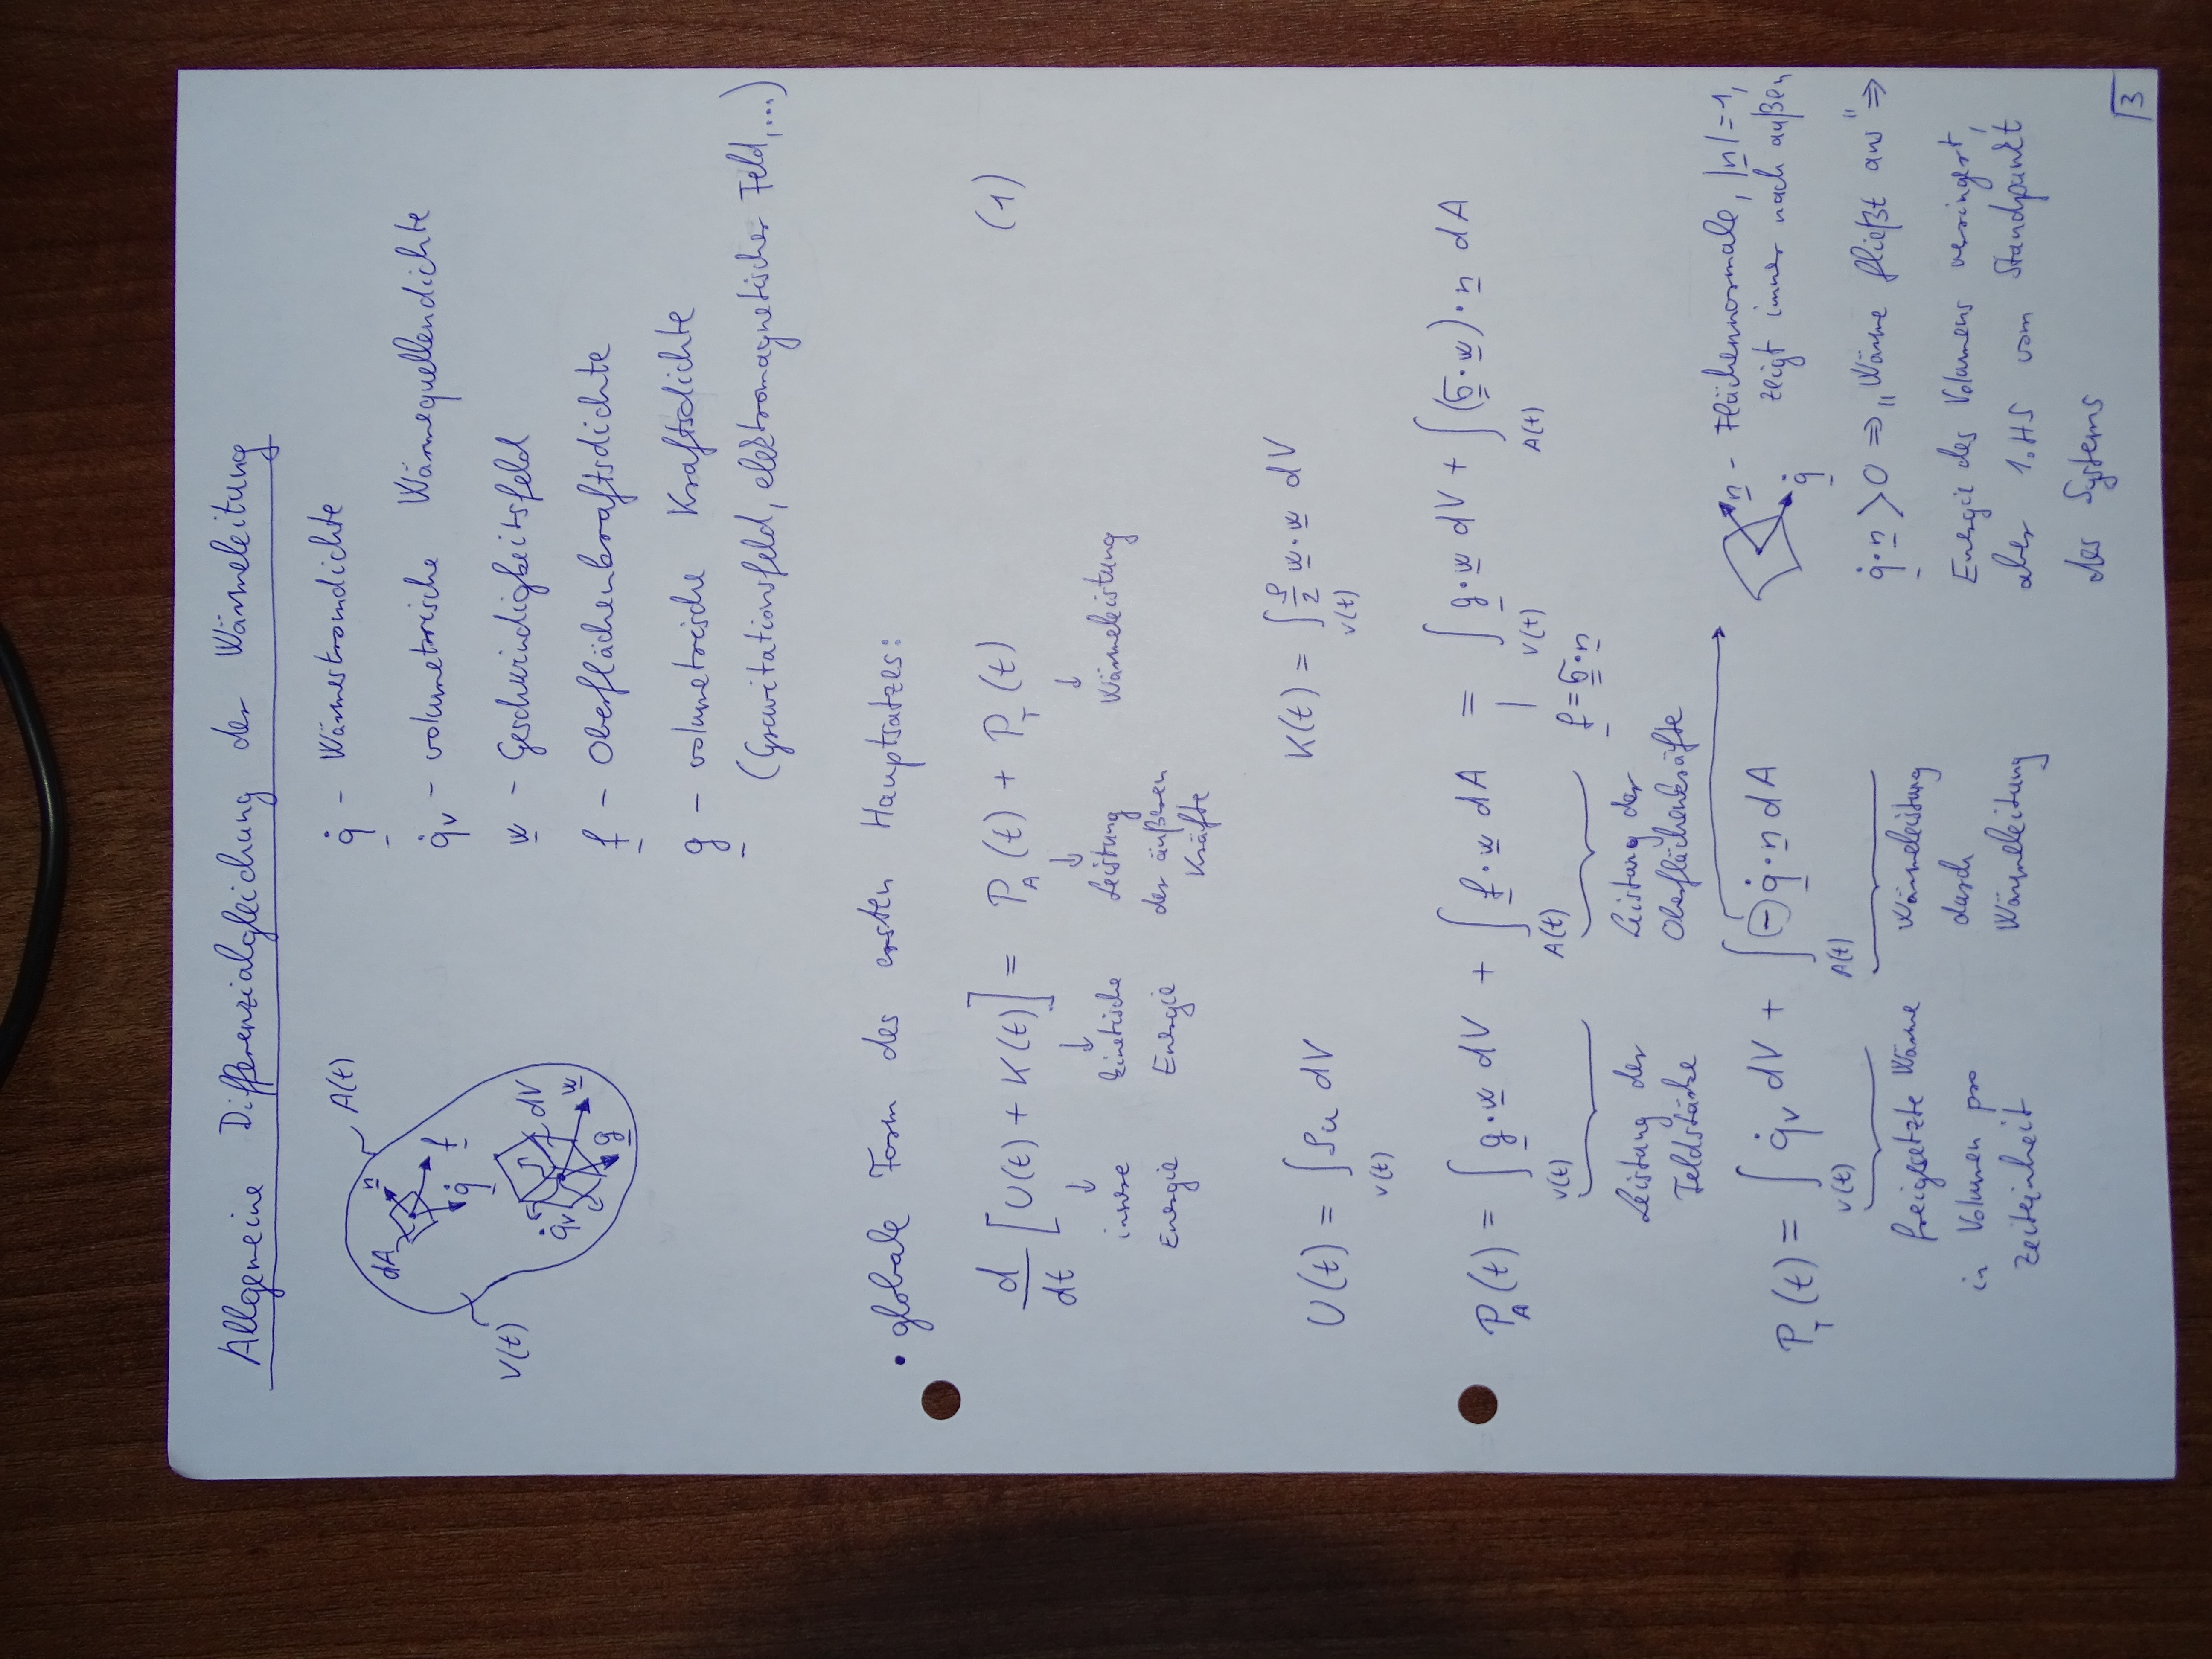 Allgemeine Differenzialgleichung der Wärmeleitung
A(t)
V(t)
dA
n
f
q̇
dV
q̇v
w
g
q̇ - Wärmestromdichte
q̇v - volumetrische Wärmequellendichte
w - Geschwindigkeitsfeld
f - Oberflächenkraftsdichte
g - volumetrische Kraftsdichte
(Gravitationsfeld, elektromagnetischer Feld,...)
• globale Form des ersten Hauptsatzes:
d/dt [U(t) + K(t)] = P_A(t) + P_T(t) (1)
↓ innere Energie
↓ kinetische Energie
↓ Leistung der äußeren Kräfte
↓ Wärmeleistung
U(t) = ∫_V(t) ρu dV K(t) = ∫_V(t) ρ/2 w·w dV
P_A(t) = ∫_V(t) g·w dV + ∫_A(t) f·w dA = ∫_V(t) g·w dV + ∫_A(t) (σ·w)·n dA
f = σ·n
Leistung der Feldstärke
Leistung der Oberflächenkräfte
P_T(t) = ∫_V(t) q̇v dV + ∫_A(t) (-) q̇·n dA
freigesetzte Wärme in Volumen pro Zeiteinheit
Wärmeleistung durch Wärmeleitung
n - Flächennormale, |n|=1,
zeigt immer nach außen
q̇
q̇·n > 0 ⇒ "Wärme fließt aus" ⇒
Energie des Volumens verringert,
aber 1.HS vom Standpunkt
des Systems
3